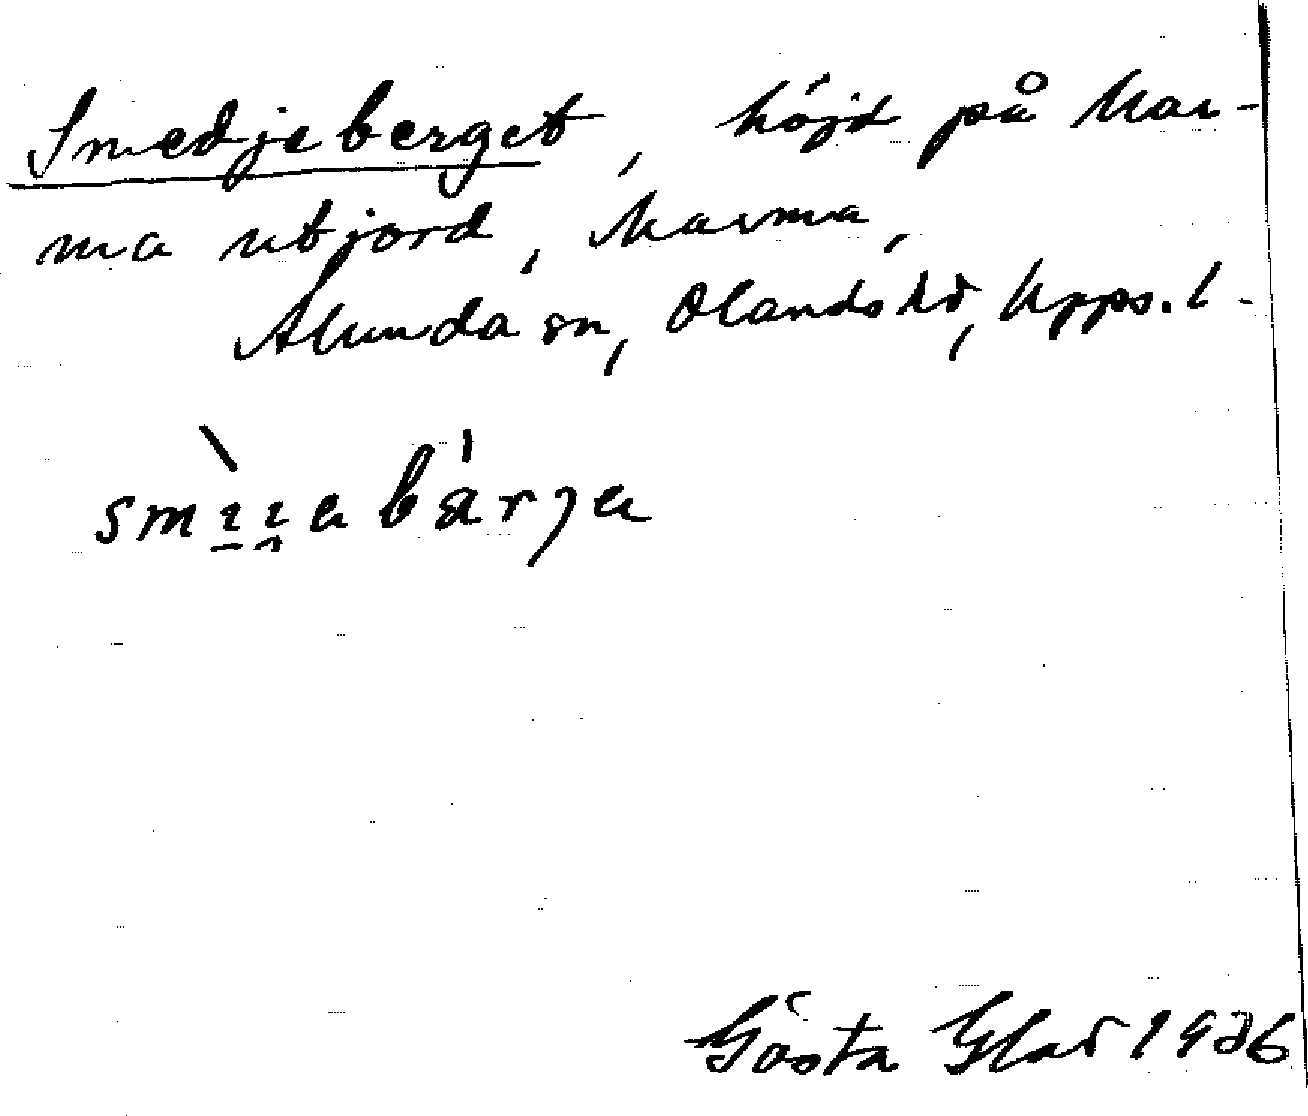 Smedjeberget, höjd på Mar-
ma utjord, Marma,
Alunda sn, Olands hd, Upps. l.
Gösta Glad 1926